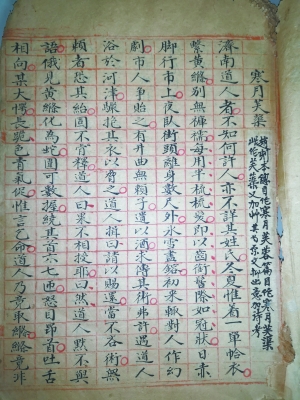 寒月芙蕖
濟南道人者不知何許人亦不詳其姓氏冬夏惟着一單帢衣
繫黃縧別無褲襦每用半梳梳髮即以齒銜髻際如冠狀日赤
脚行市上夜臥街頭離身數尺外氷雪盡鎔初來輒對人作幻
劇市人爭貽之有井曲無賴子遺以酒求傳其術弗許遇道人
浴於河津驟抱其衣以脅之道人揖曰請以賜還當不吝術無
賴者恐其紿固不肯釋道人曰果不相授耶曰然道人默不與
語俄見黃縧化為蛇圍可數握繞其身六七匝怒目昂首吐舌
相向某大愕長跪色青氣促惟言乞命道人乃竟取縧縧竟非